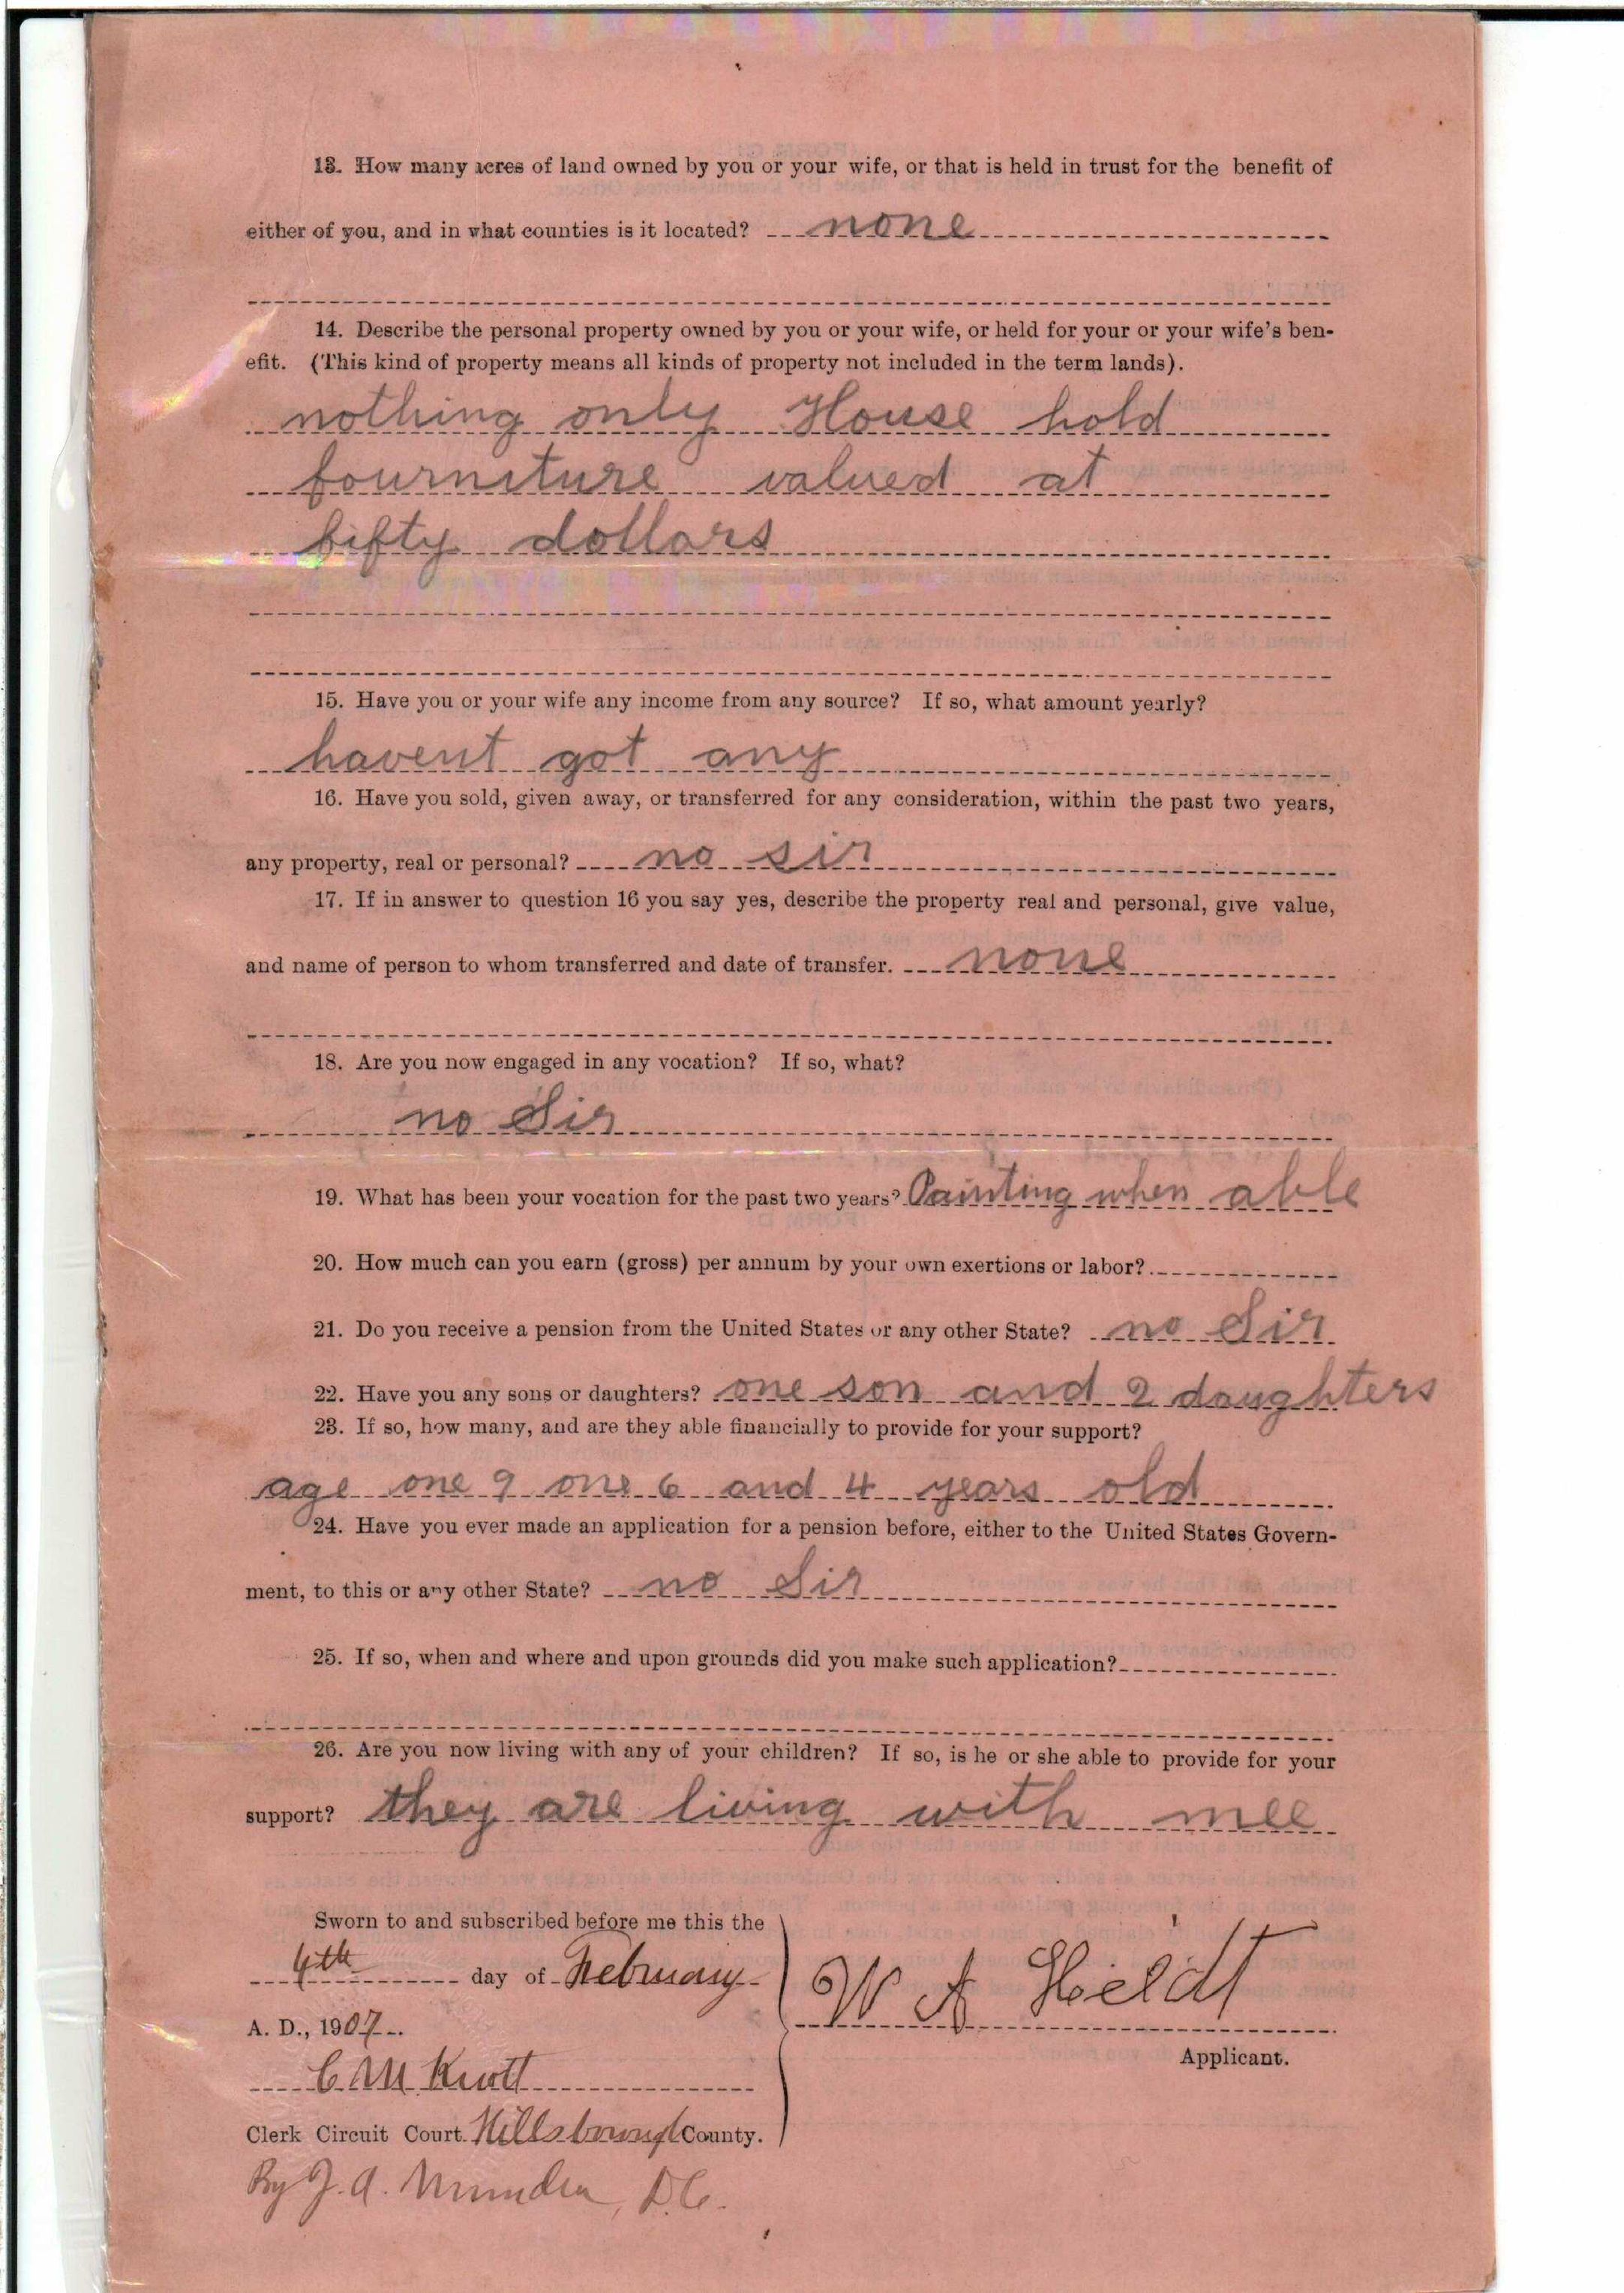 13. How many acres of land owned by you or your wife, or that is held in trust for the benefit of
either of you, and in what counties is it located? none
14. Describe the personal property owned by you or your wife, or held for your or your wife's ben-
efit. (This kind of property means all kinds of property not included in the term lands).
nothing only House hold
fourniture valued at
fifty dollars
15. Have you or your wife any income from any source? If so, what amount yearly?
havent got any
16. Have you sold, given away, or transferred for any consideration, within the past two years,
any property, real or personal? no sir
17. If in answer to question 16 you say yes, describe the property real and personal, give value,
and name of person to whom transferred and date of transfer. none
18. Are you now engaged in any vocation? If so, what?
no Sir
19. What has been your vocation for the past two years? Painting when able
20. How much can you earn (gross) per annum by your own exertions or labor?
21. Do you receive a pension from the United States or any other State? no Sir
22. Have you any sons or daughters? one son and 2 daughters
23. If so, how many, and are they able financially to provide for your support?
age one 9 one 6 and 4 years old
24. Have you ever made an application for a pension before, either to the United States Govern-
ment, to this or any other State? no Sir
25. If so, when and where and upon grounds did you make such application?
26. Are you now living with any of your children? If so, is he or she able to provide for your
support? they are living with mee
Sworn to and subscribed before me this the
4th day of February
A. D., 1907
W A Hieldt
Applicant.
C M Knott
Clerk Circuit Court. Hillsborough County.
By J. A. , D.C.